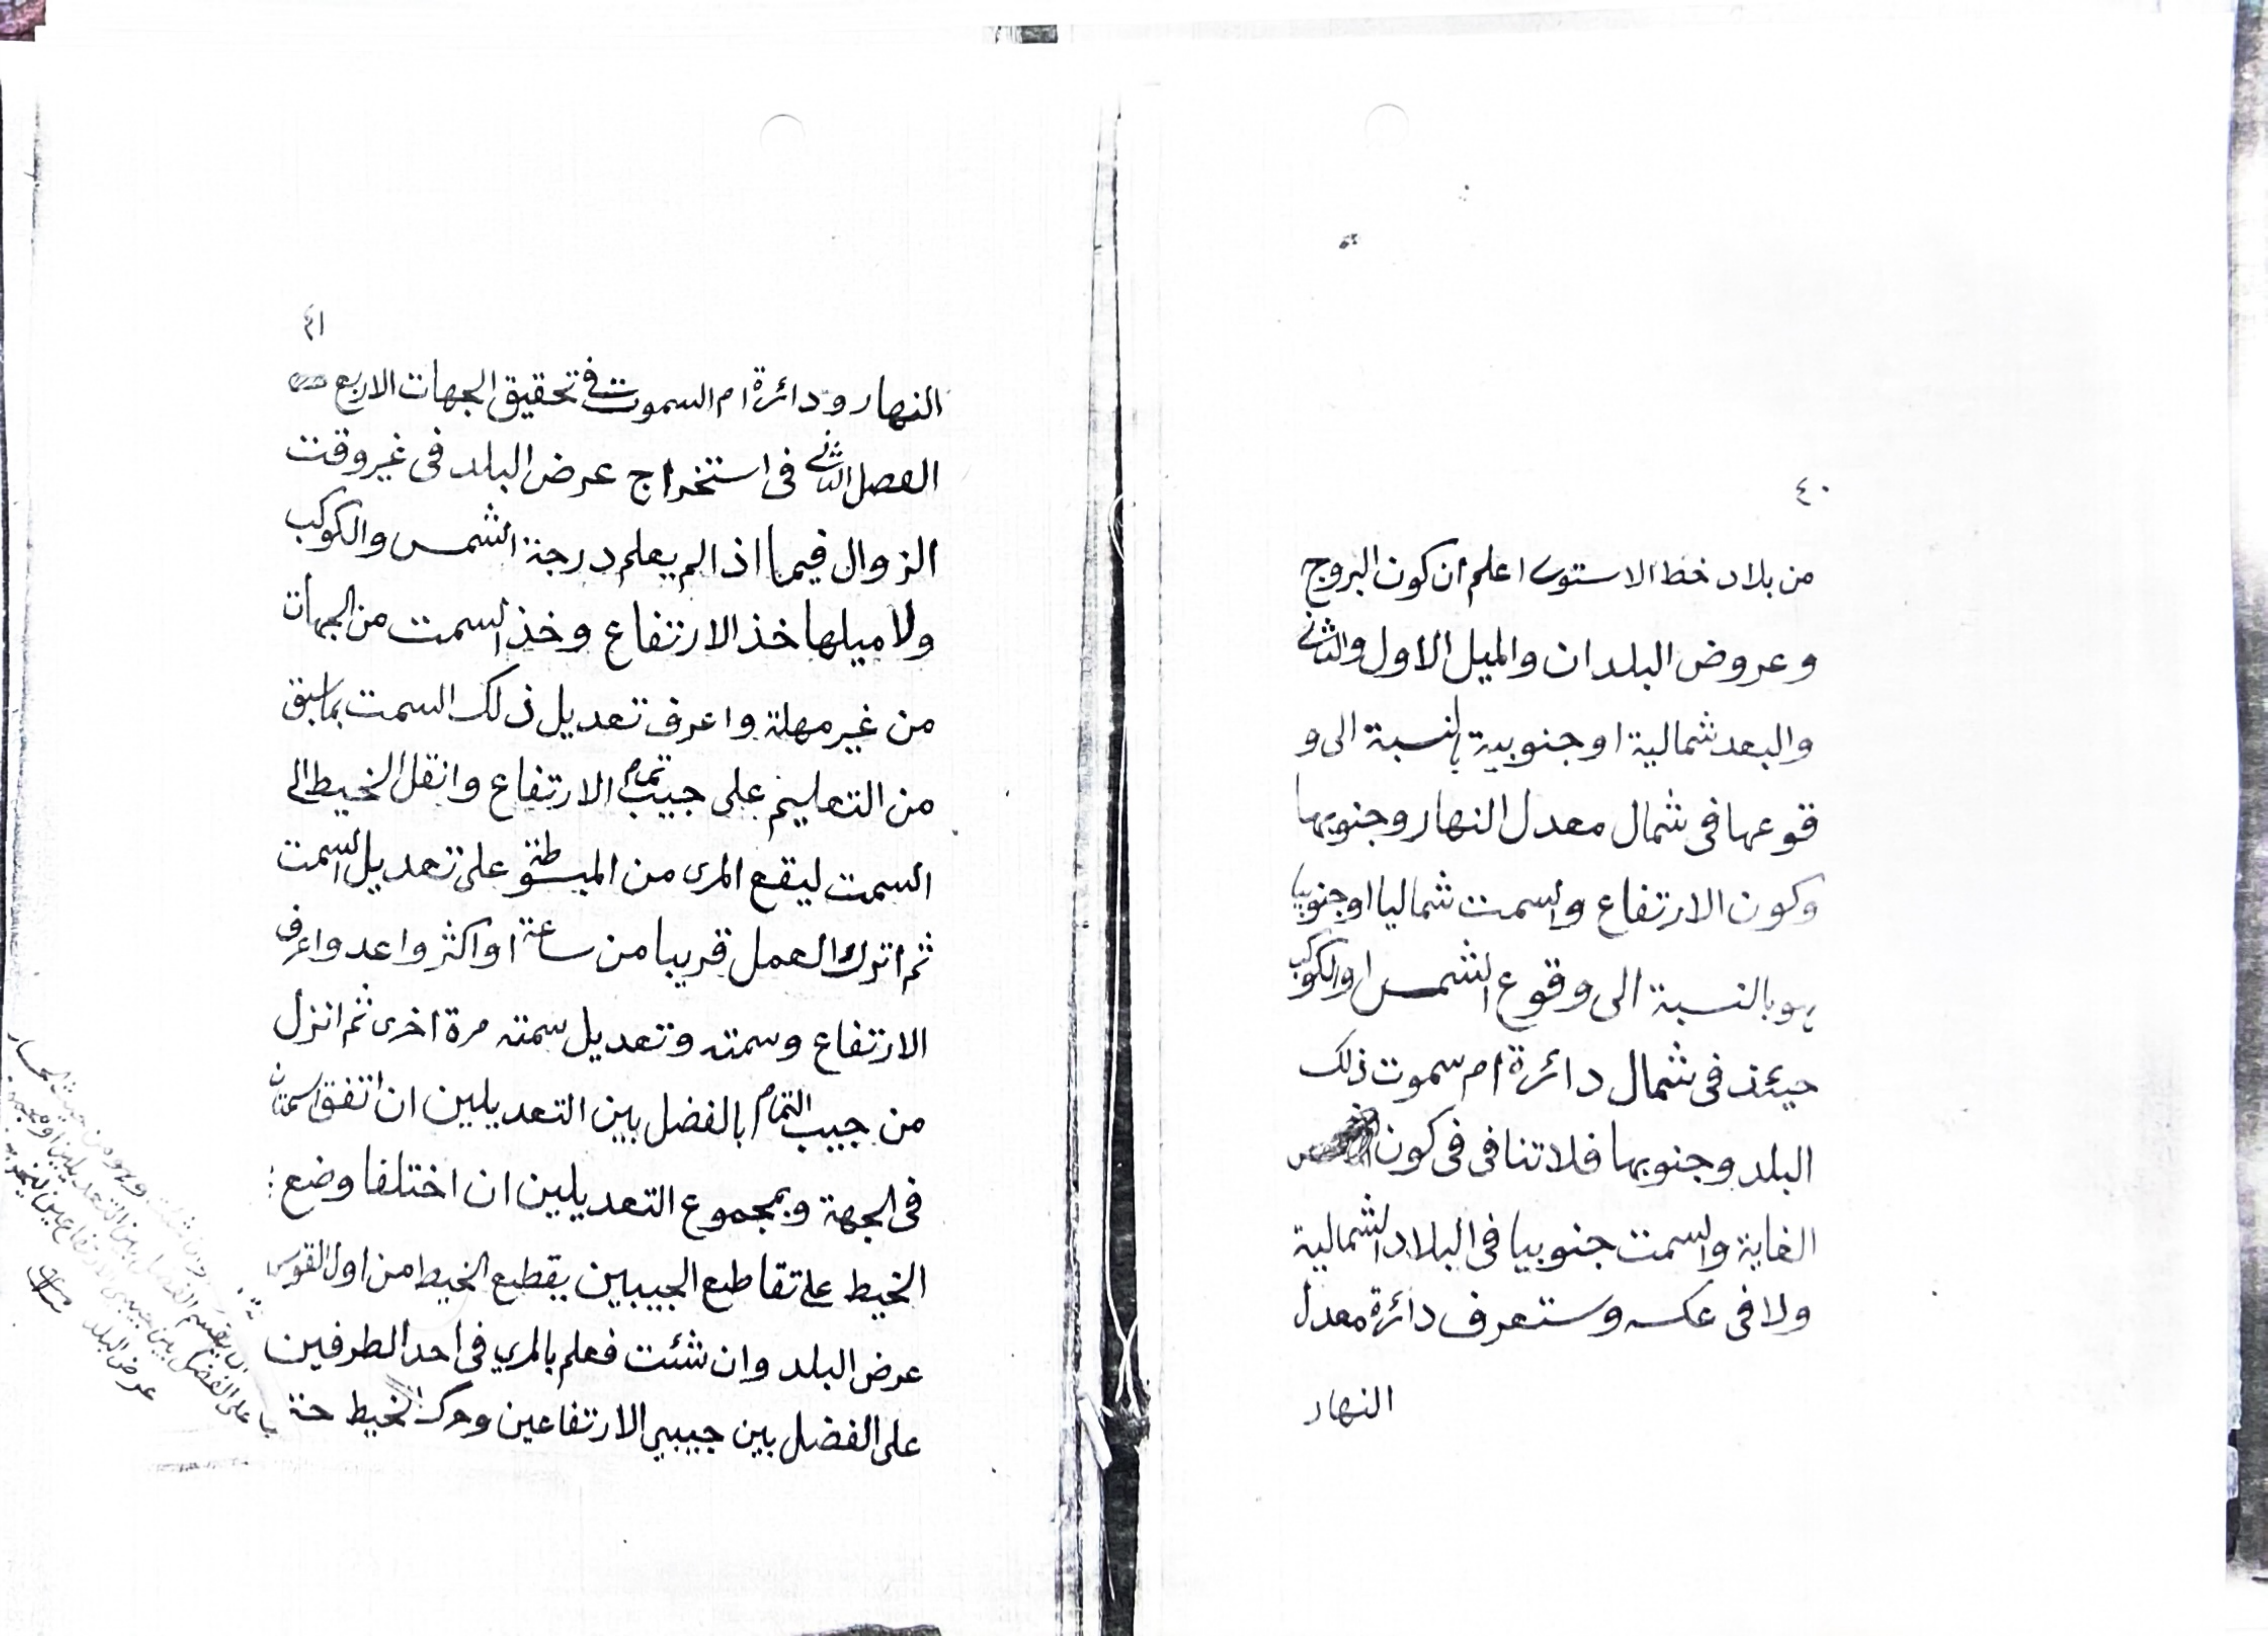 ٤٠
من بلاد خط الاستوى اعلم ان كون البروج
وعروض البلدان والميل الاول والثانى
والبعد شمالية او جنوبية بالنسبة الى و
قوعها فى شمال معدل النهار وجنوبها
وكون الارتفاع والسمت شماليا او جنوبيا
هو بالنسبة الى وقوع الشمس او الكوكب
حينئذ فى شمال دائرة ام سموت ذلك
البلد وجنوبها فلا تنافى فى كون
الغاية والسمت جنوبيا فى البلاد الشمالية
ولا فى عكسه وستعرف دائرة معدل
النهار
٤١
النهار ودائرة ام السموت فى تحقيق الجهات الاربع
الفصل الثانى فى استخراج عرض البلد فى غير وقت
الزوال فيما اذا لم يعلم درجة الشمس والكوكب
ولا ميلها خذ الارتفاع وخذ السمت من الجهات
من غير مهلة واعرف تعديل ذلك السمت بما سبق
من التعليم على جيب تمام الارتفاع وانقل الخيط الى
السمت ليقع المرى من المبسوطة على تعديل السمت
ثم اترك العمل قريبا من ساعة او اكثر واعد واعرف
الارتفاع وسمته وتعديل سمته مرة اخرى ثم انزل
من جيب التمام بالفضل بين التعديلين ان اتفق السمتان
فى الجهة وبمجموع التعديلين ان اختلفا وضع
الخيط على تقاطع الجيبين يقطع الخيط من اول القوس
عرض البلد وان شئت فعلم بالمري فى احد الطرفين
على الفضل بين جيبي الارتفاعين وحرك الخيط حتى
على الفضل بين جيبى الارتفاعين
عرض البلد